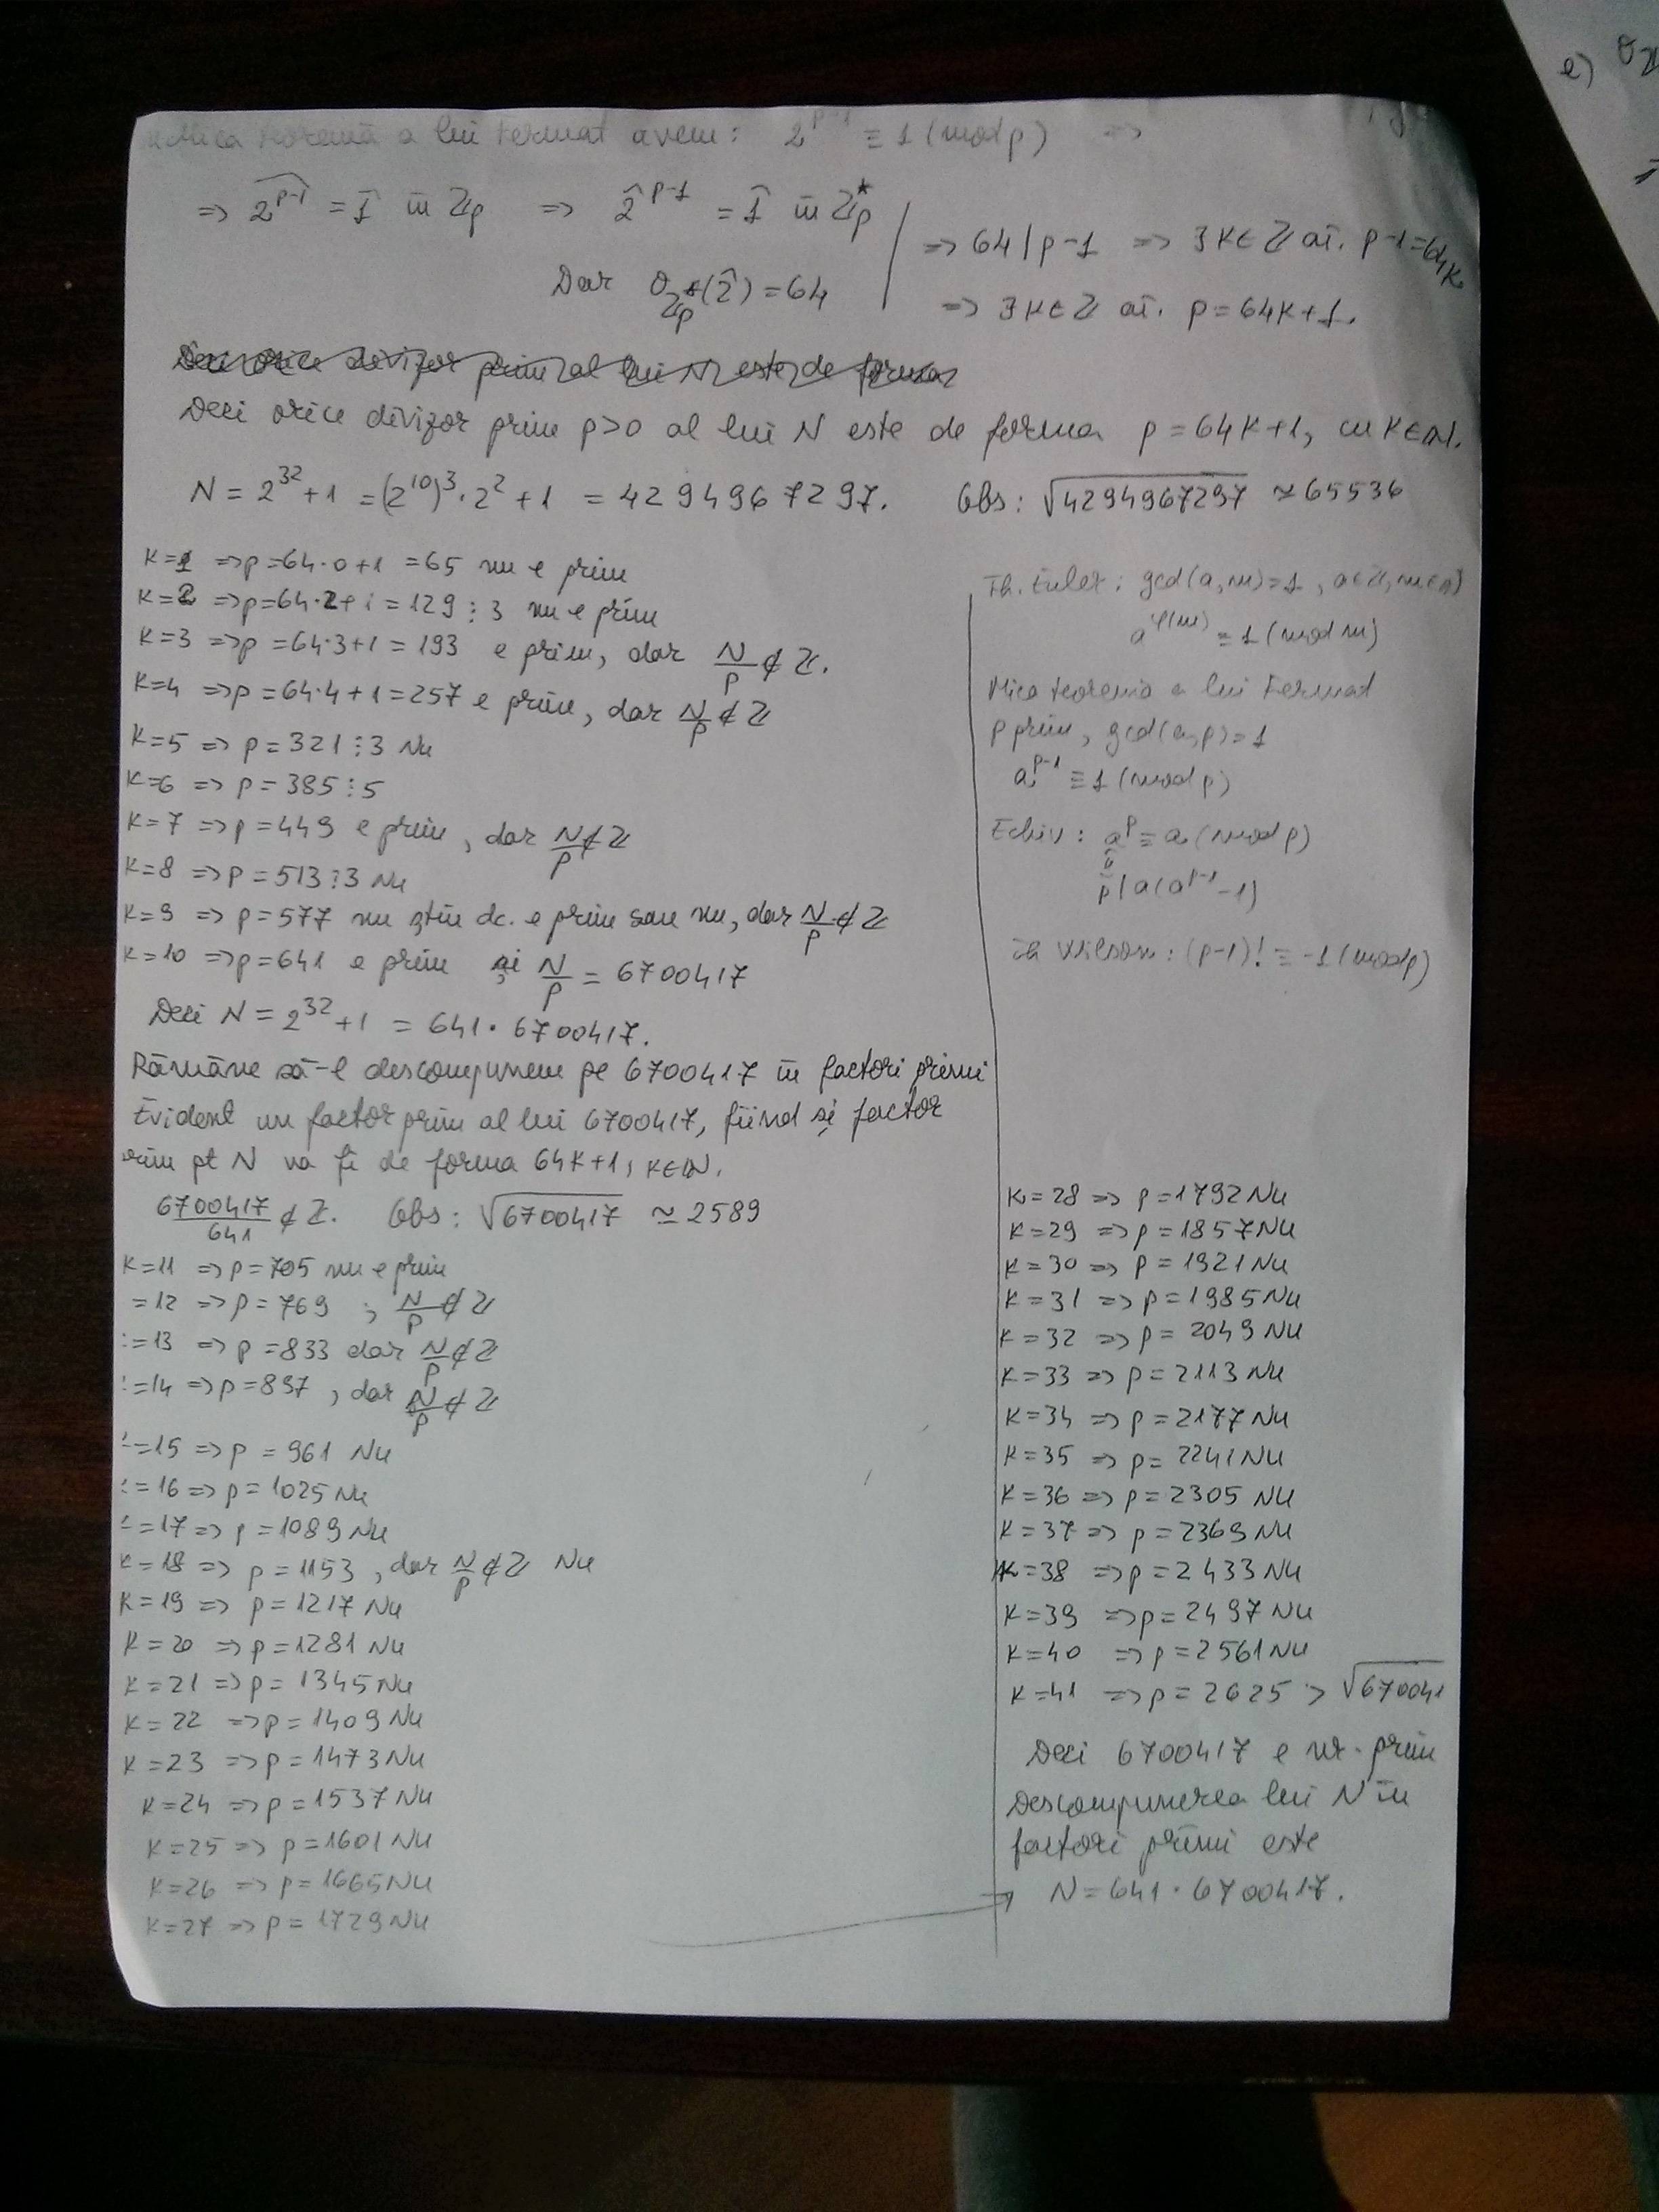 Mica teoremă a lui Fermat avem: 2^{p-1} ≡ 1 (mod p) =>
=> \widehat{2^{p-1}} = \hat{1} în ℤ_p => \hat{2}^{p-1} = \hat{1} în ℤ_p^*
Dar O_{ℤ_p^*}(\hat{2}) = 64
=> 64 | p-1 => ∃ k∈ℤ aî. p-1=64k.
=> ∃ k∈ℤ aî. p=64k+1.
Deci orice divizor prim al lui N este de forma
Deci orice divizor prim p>0 al lui N este de forma p=64k+1, cu k∈ℕ.
N = 2^{32}+1 = (2^{10})^3·2^2+1 = 4294967297. Obs: √4294967297 ≃ 65536
k=1 => p=64·0+1 = 65 nu e prim
k=2 => p=64·2+1 = 129 ⋮ 3 nu e prim
k=3 => p=64·3+1 = 193 e prim, dar N/p ∉ ℤ.
k=4 => p=64·4+1=257 e prim, dar N/p ∉ ℤ
k=5 => p=321 ⋮ 3 Nu
k=6 => p=385 ⋮ 5
k=7 => p=449 e prim, dar N/p ∉ ℤ
k=8 => p=513 ⋮ 3 Nu
k=9 => p=577 nu știu dc. e prim sau nu, dar N/p ∉ ℤ
k=10 => p=641 e prim și N/p = 6700417
Deci N = 2^{32}+1 = 641·6700417.
Rămâne să-l descompunem pe 6700417 în factori primi
Evident un factor prim al lui 6700417, fiind și factor
rim pt N va fi de forma 64k+1, k∈ℕ.
6700417/641 ∉ ℤ. Obs: √6700417 ≃ 2589
k=11 => p=705 nu e prim
=12 => p=769 ; N/p ∉ ℤ
=13 => p=833 dar N/p ∉ ℤ
=14 => p=897, dar N/p ∉ ℤ
=15 => p=961 Nu
=16 => p=1025 Nu
=17 => p=1089 Nu
k=18 => p=1153, dar N/p ∉ ℤ Nu
k=19 => p=1217 Nu
k=20 => p=1281 Nu
k=21 => p=1345 Nu
k=22 => p=1409 Nu
k=23 => p=1473 Nu
k=24 => p=1537 Nu
k=25 => p=1601 Nu
k=26 => p=1665 Nu
k=27 => p=1729 Nu
Th. Euler: gcd(a,m)=1, a∈ℤ, m∈ℕ
a^{φ(m)} ≡ 1 (mod m)
Mica teorema a lui Fermat
p prim, gcd(a,p)=1
a^{p-1} ≡ 1 (mod p)
Echiv: a^p ≡ a (mod p)
p | a(a^{p-1}-1)
Th Wilson: (p-1)! ≡ -1 (mod p)
k=28 => p=1792 Nu
k=29 => p=1857 Nu
k=30 => p=1921 Nu
k=31 => p=1985 Nu
k=32 => p=2049 Nu
k=33 => p=2113 Nu
k=34 => p=2177 Nu
k=35 => p=2241 Nu
k=36 => p=2305 Nu
k=37 => p=2369 Nu
k=38 => p=2433 Nu
k=39 => p=2497 Nu
k=40 => p=2561 Nu
k=41 => p=2625 > √670041
Deci 6700417 e nr. prim
Descompunerea lui N în
factori primi este
→ N=641·6700417.
e)